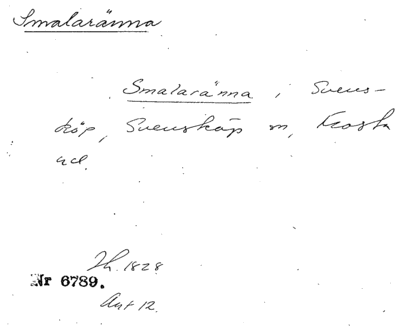 Smalaränna
Smalaränna i Svens-
köp, Svensköp sn, Frosta
hd.
Jh. 1828
Nr 6789.
Ant 12.